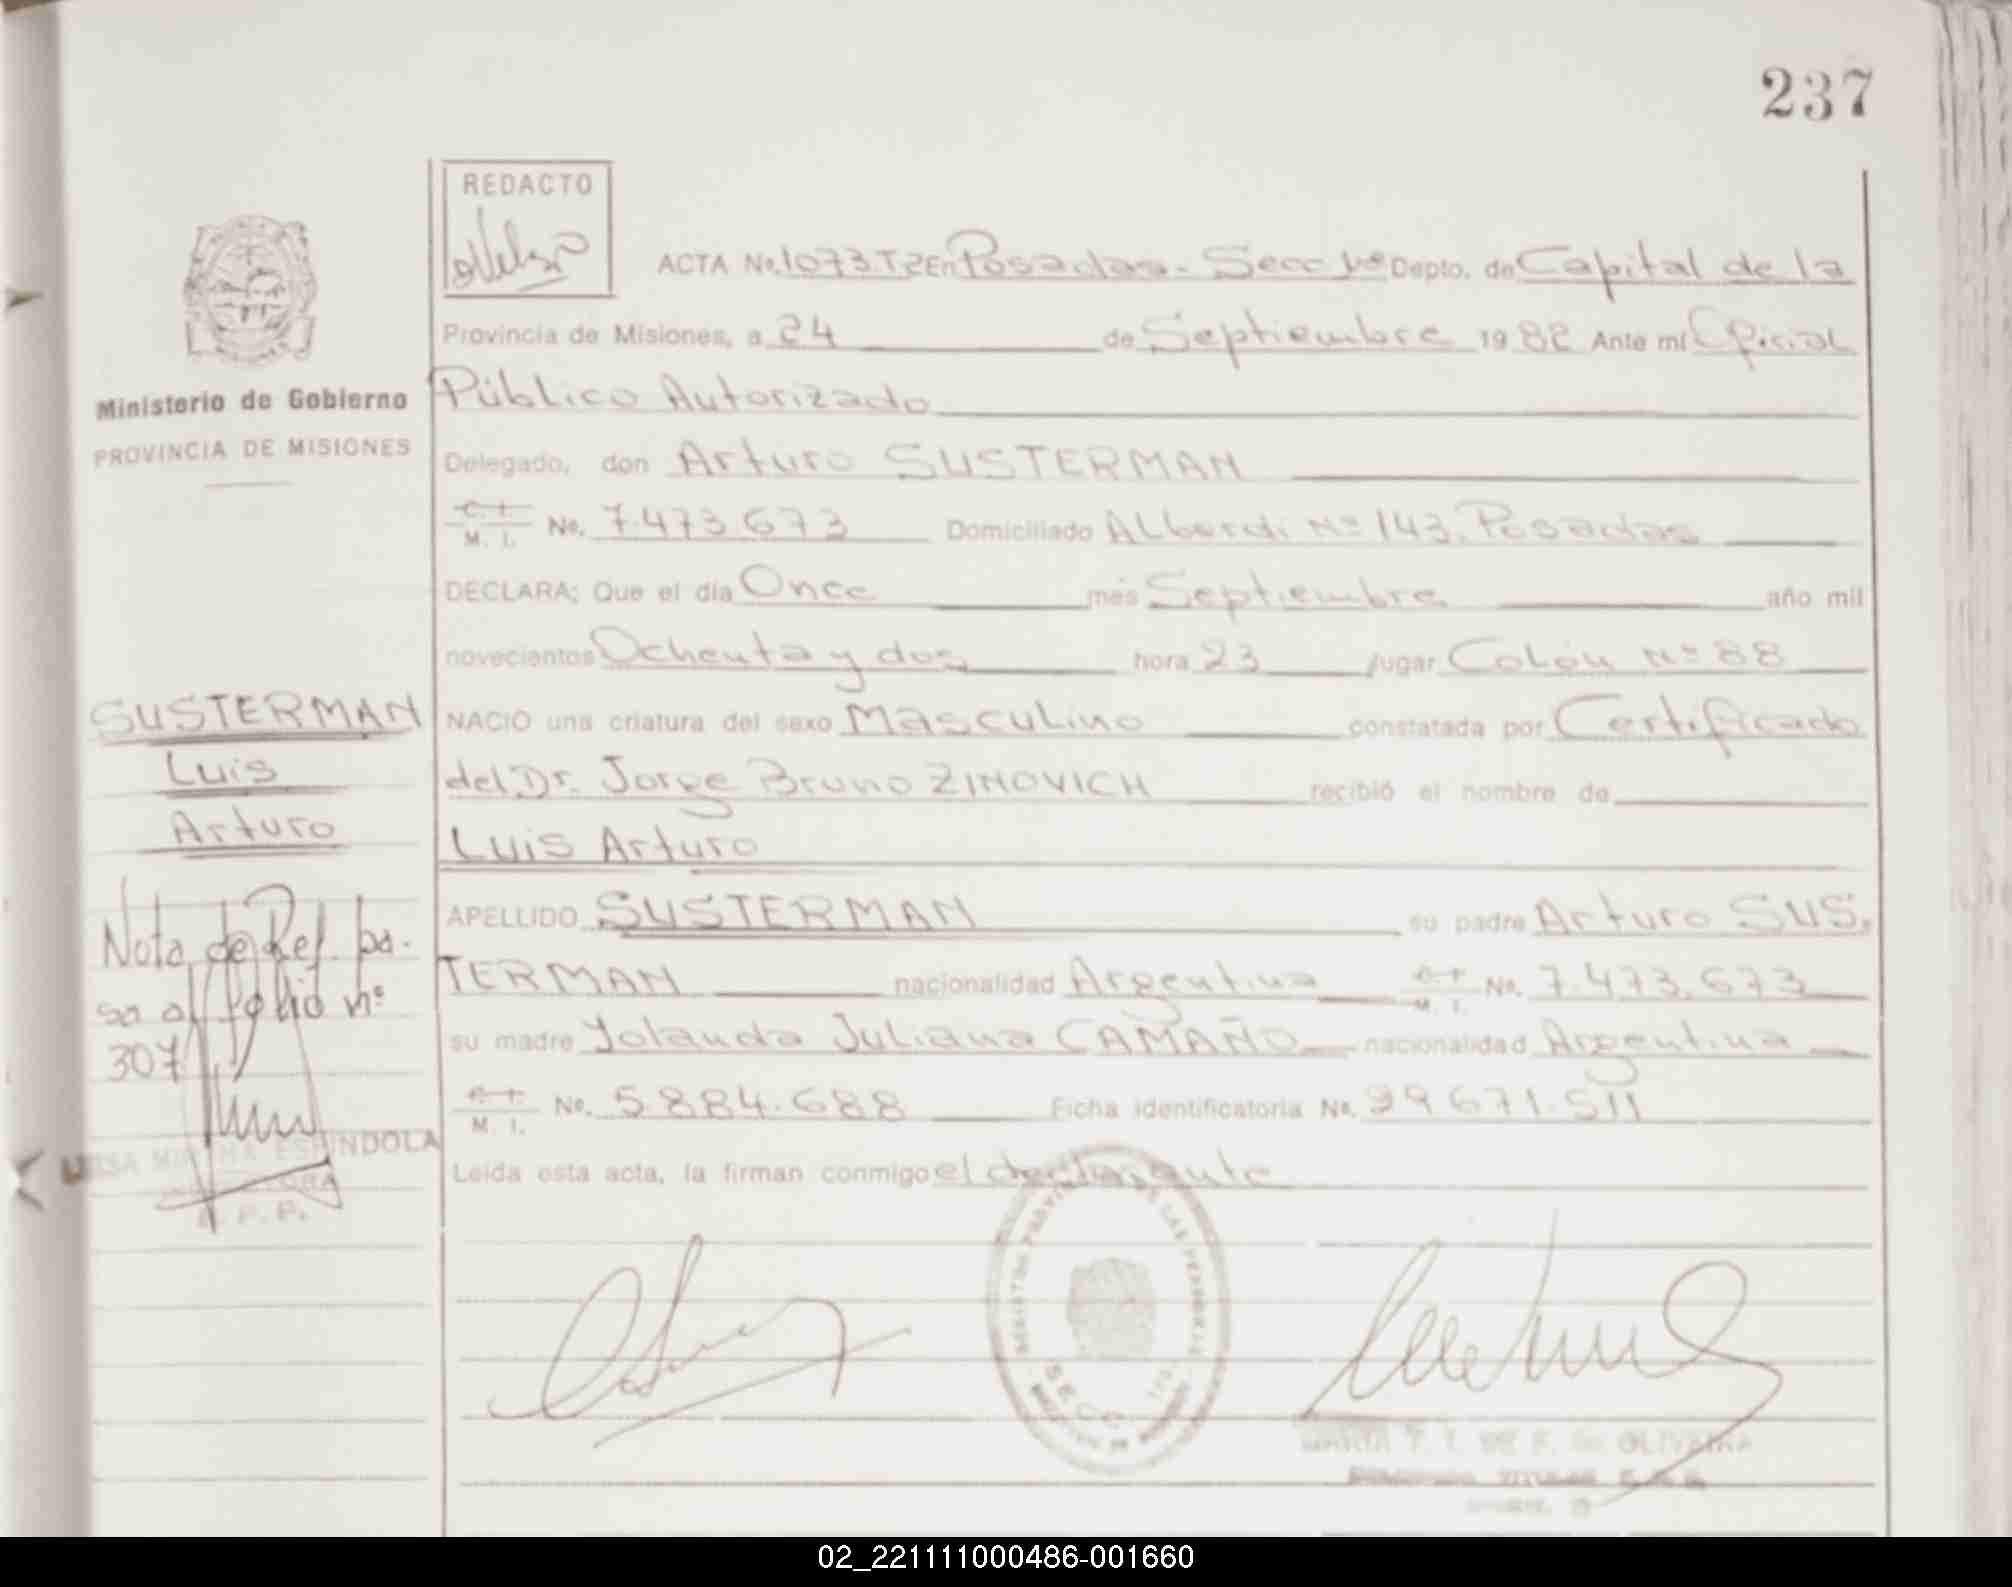 237
REDACTO
ACTA No. 1073.T2 En Posadas - Secc 1º Depto. de Capital de la
Provincia de Misiones, a 24 de Septiembre 1982 Ante mí Oficial
Ministerio de Gobierno
Público Autorizado
PROVINCIA DE MISIONES
Delegado, don Arturo SUSTERMAN
C. I. M. I. No. 7.473.673 Domiciliado ALberdi Nº 143. Posadas
DECLARA; Que el día Once mes Septiembre año mil
novecientos Ochenta y dos hora 23 lugar Colón Nº 88
SUSTERMAN
Luis
Arturo
NACIO una criatura del sexo Masculino constatada por Certificado
del Dr. Jorge Bruno ZINOVICH recibió el nombre de
Luis Arturo
Nota de Ref. pa-
sa al folio nº
307
APELLIDO SUSTERMAN su padre Arturo SUS.
TERMAN nacionalidad Argentina C. I. M. I. No. 7.473.673
su madre Yolanda Juliana CAMAÑO nacionalidad Argentina
C. I. M. I. No. 5.884.688 Ficha identificatoria No. 29671.511
ESPINDOLA
Leída esta acta, la firman conmigo el declarante
R. P. P.
REGISTRO PROVINCIAL DE LAS PERSONAS
SECC.
MARIA T. I. DE F. de OLIVEIRA
TITULAR
02_221111000486-001660